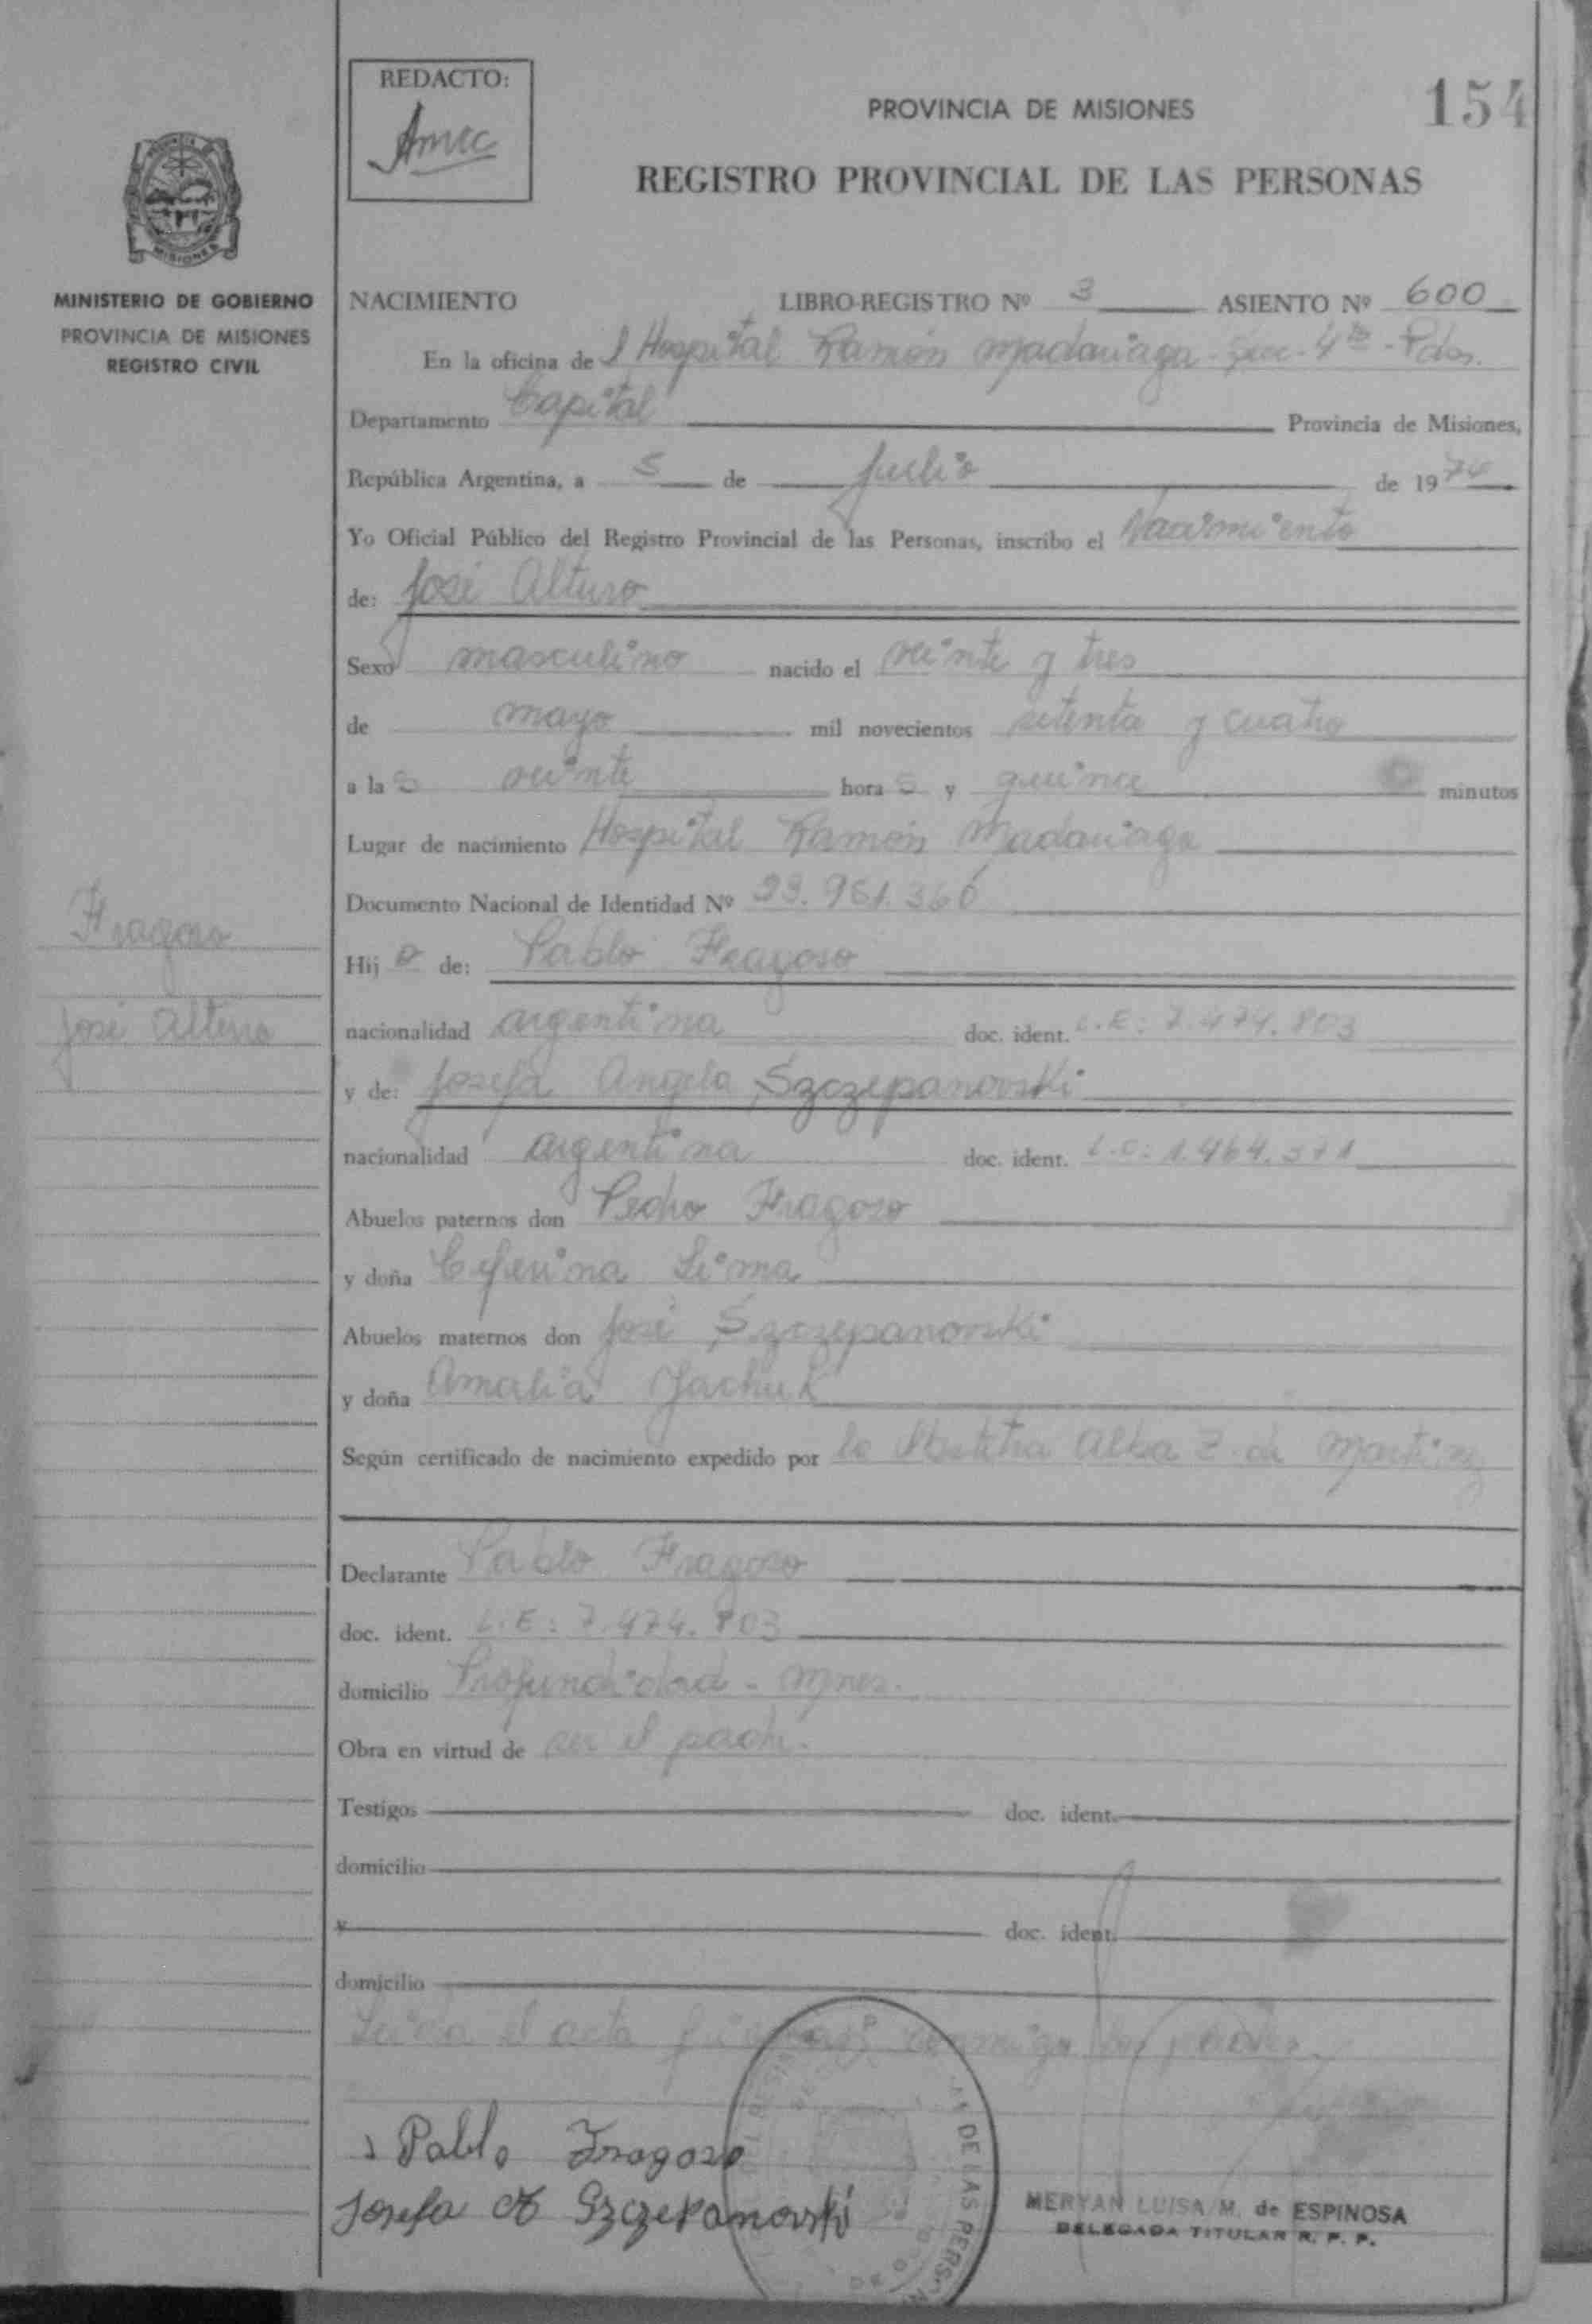 REDACTO:
154
PROVINCIA DE MISIONES
REGISTRO PROVINCIAL DE LAS PERSONAS
MISIONES
MINISTERIO DE GOBIERNO
PROVINCIA DE MISIONES
REGISTRO CIVIL
NACIMIENTO LIBRO-REGISTRO Nº 3 ASIENTO Nº 600
En la oficina de l Hospital Ramón Madariaga - Secc. 4ta - Pdas.
Departamento Capital Provincia de Misiones,
República Argentina, a 5 de Julio de 1974
Yo Oficial Público del Registro Provincial de las Personas, inscribo el Nacimiento
de: José Alturo
Sexo masculino nacido el veinte y tres
de mayo mil novecientos setenta y cuatro
a las veinte horas y quince minutos
Lugar de nacimiento Hospital Ramón Madariaga
Documento Nacional de Identidad Nº 23.961.366
Fragoso
Hijo de: Pablo Fragoso
José Alturo
nacionalidad argentina doc. ident. L.E: 7.474.803
y de: Josefa Angela Szczepanovski
nacionalidad argentina doc. ident. L.C: 1.464.
Abuelos paternos don Pedro Fragoso
y doña Ceferina Lima
Abuelos maternos don José Szczepanovski
y doña Amalia Jachuk
Según certificado de nacimiento expedido por la Obstetra Alba Z. de Martinez
Declarante Pablo Fragoso
doc. ident. L.E: 7.474.803
domicilio Profundidad - Mnes.
Obra en virtud de ser el padre.
Testigos doc. ident.
domicilio
y doc. ident.
domicilio
Leida el acta firman conmigo los padres.
Pablo Fragoso
Josefa A Szczepanovski
DE LAS PERS
MERYAN LUISA M. de ESPINOSA
DELEGADA TITULAR R. P. P.